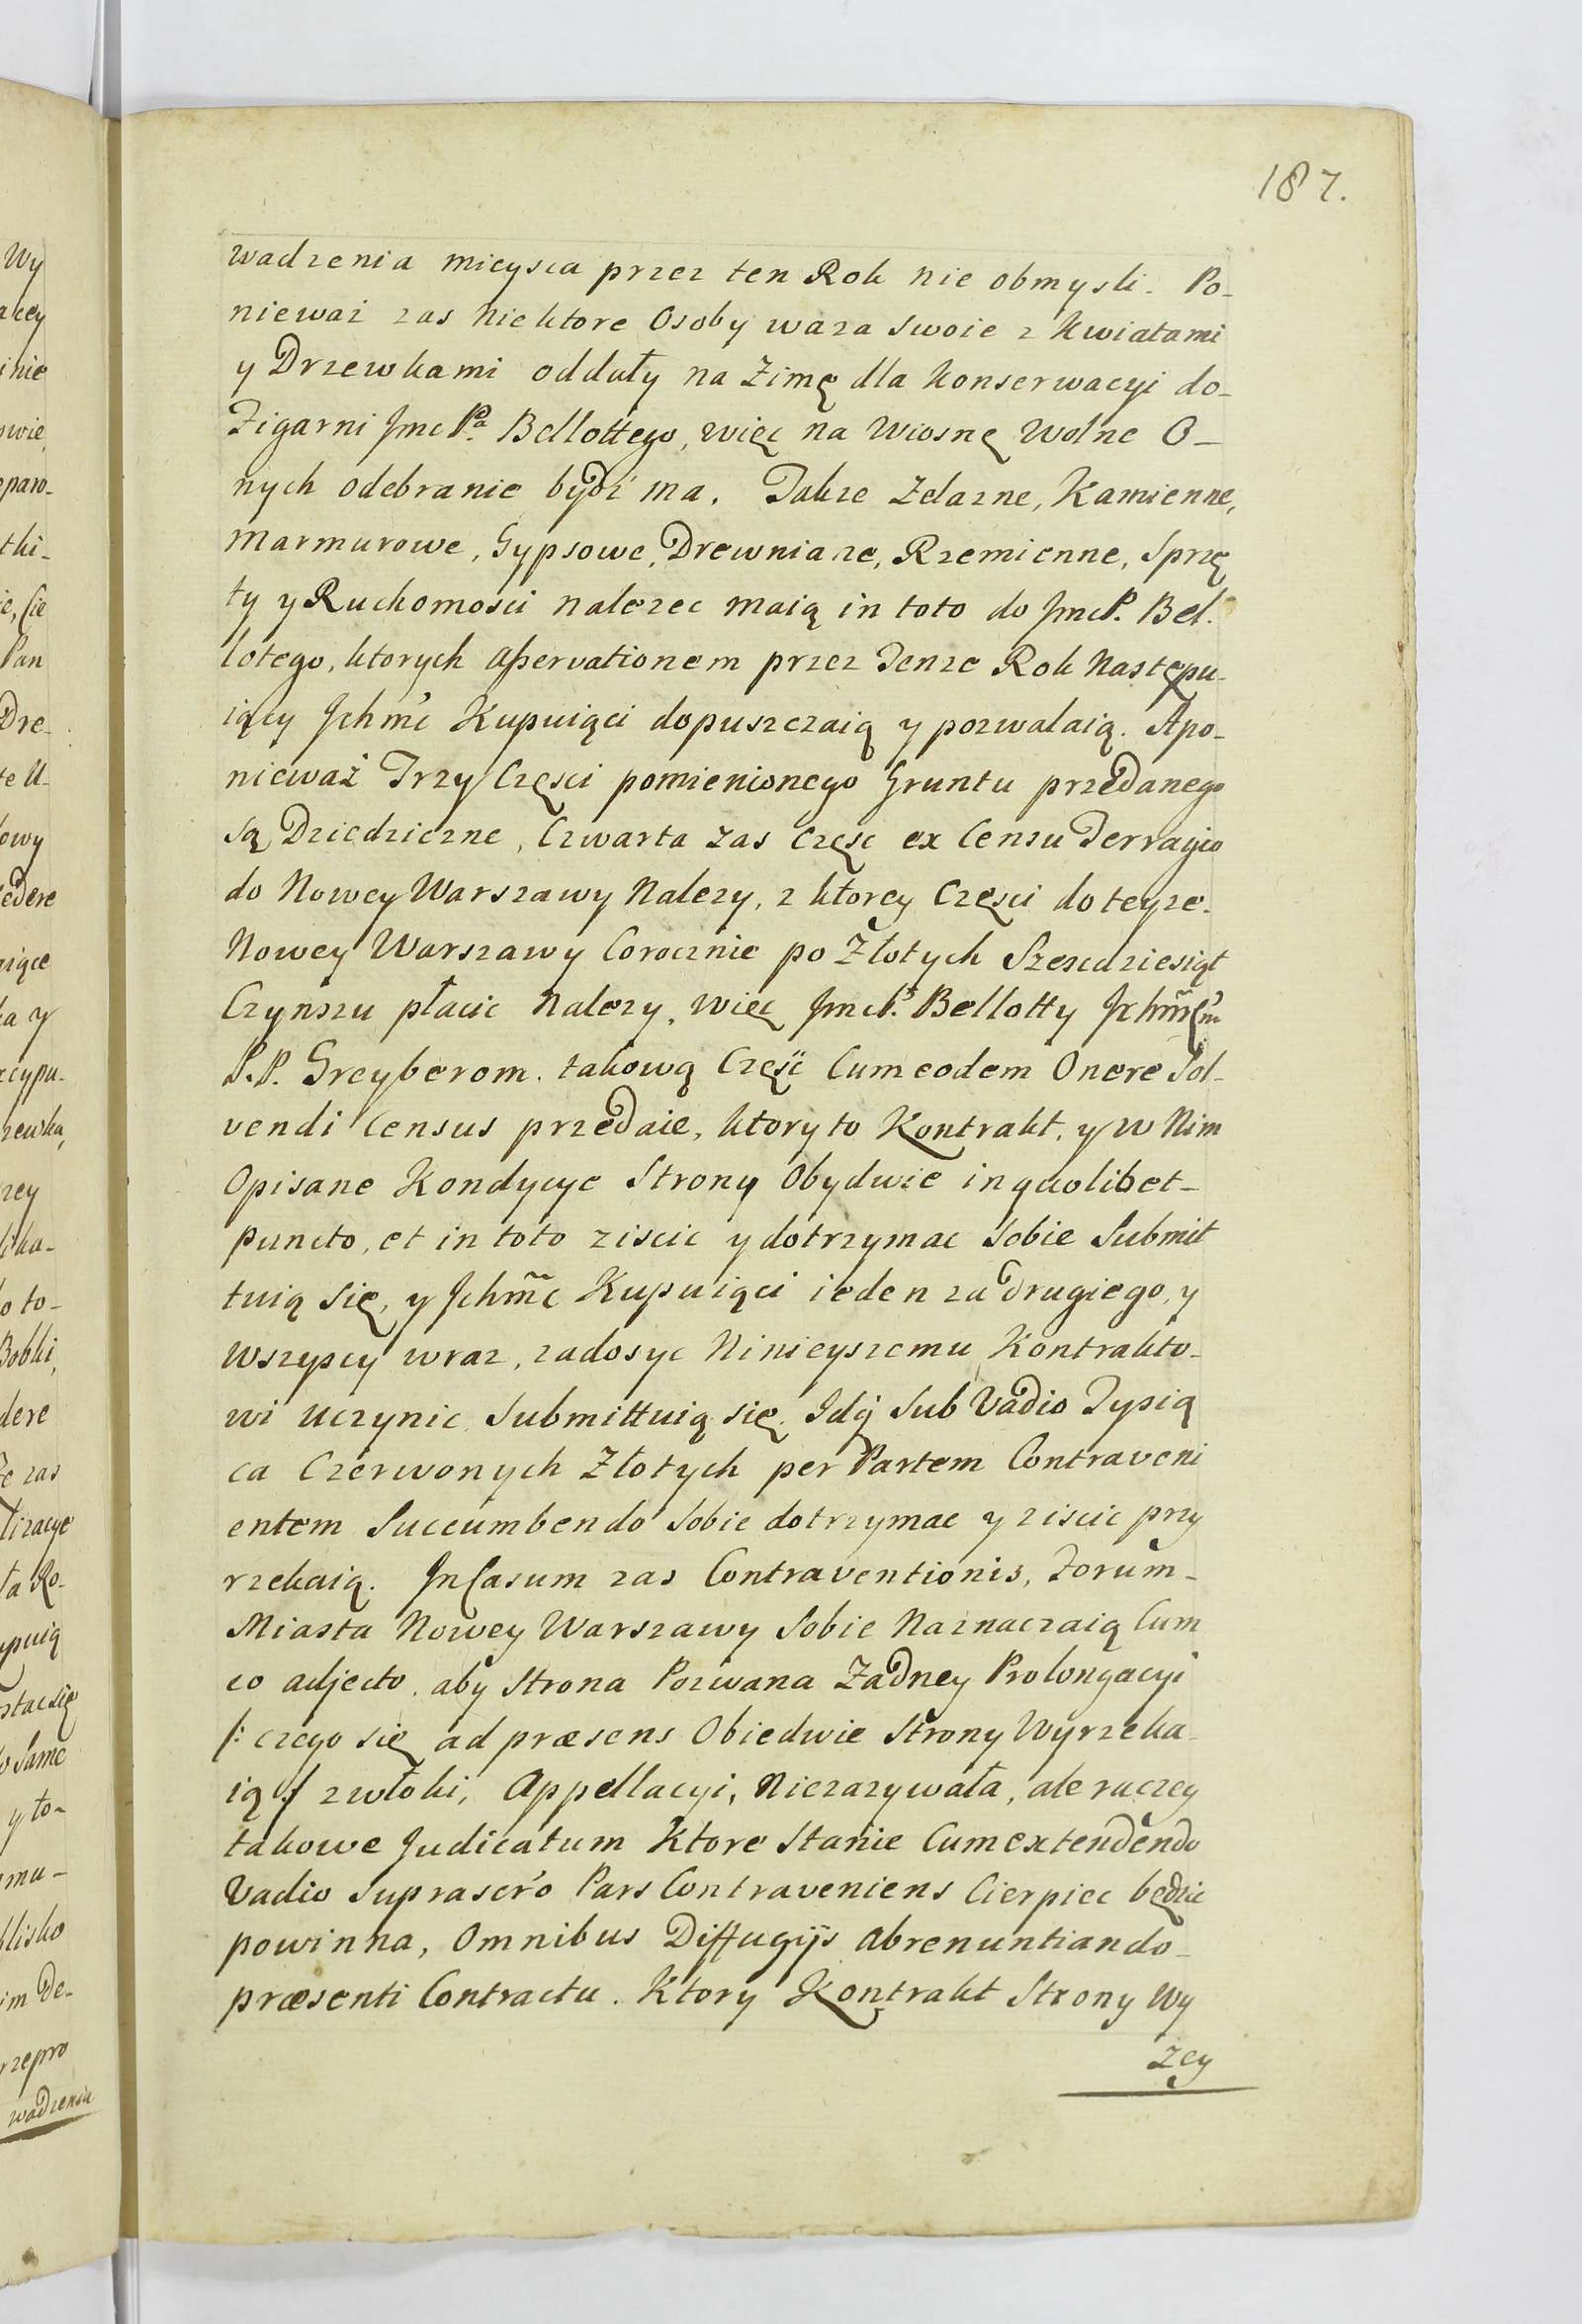 187.
wadzenia mieysca przez ten Rok nie obmysli. Po-
nieważ zas niektore Osoby waza swoie z Kwiatami
y Drzewkami oddały na Zimę dla konserwacyi do-
Figarni Jmc Pa. Bellottego, więc na Wiosnę Wolne O-
nych odebranie bydź ma. Takze Zelazne, Kamienne,
Marmurowe, Gypsowe, Drewniane, Rzemienne, Sprzę
ty y Ruchomosci nalezec maią in toto do Jmc P. Bel.
lotego, ktorych aßervationem przez Tenze Rok Następu-
iący Jchmć Kupuiąci dopuszczaią y pozwalaią. Apo-
nieważ Trzy Częsci pomienionego Gruntu przedanego
są Dziedziczne, Czwarta zas Częsc ex Censu Terragio
do Nowey Warszawy Nalezy, z ktorey Częsci do teyze-
Nowey Warszawy Corocznie po Złotych Szescdziesiąt
Czynszu płacic Nalezy, więc Jmc P. Bellotty Jchm̃
P.P. Greyberom. takową Częśc Cum eodem Onere Sol-
vendi Census przedaie, ktory to Kontrakt, y w Nim
Opisane Kondycye Strony Obydwie in quolibet-
puncto, et in toto ziscic y dotrzymac Sobie Submit
tuią Się, y Jchm̃c Kupuiąci ieden za drugiego, y
wszyscy wraz, zadosyc Ninieyszemu Kontrakto-
wi uczynic Submittuią się. Idq́ Sub Vadio Tysią
ca Czerwonych Złotych per Partem Contraveni
entem Succumbendo Sobie dotrzymac y ziscic przy
rzekaią. Jn Casum zas Contraventionis, Forum-
Miasta Nowey Warszawy Sobie Naznaczaią Cum
eo adjecto, aby Strona Pozwana Zadney Prolongacyi
/: czego się ad præsens Obiedwie Strony Wyrzeka
ią :/ zwłoki, Appellacyi, Niezazywała, ale raczey
takowe Judicatum Ktore Stanie Cum extendendo
Vadio Suprascr'o Pars Contraveniens Cierpiec będzie
powinna, Omnibus Diffugijs abrenuntiando-
præsenti Contractu. Ktory Kontrakt Strony Wy
zey
Wy
akey
inie
owie,
eparo-
tki-
ie, Cie
Pan
Dre-
te U-
owy
edere
iące
a y
cypu-
zewka,
rey
ka-
o to-
Bobki,
dere
Ze zas
lizacye
ta Ro-
upuią
ostac się
o Same
y to-
mu-
lisko
im De-
rzepro
wadzenia